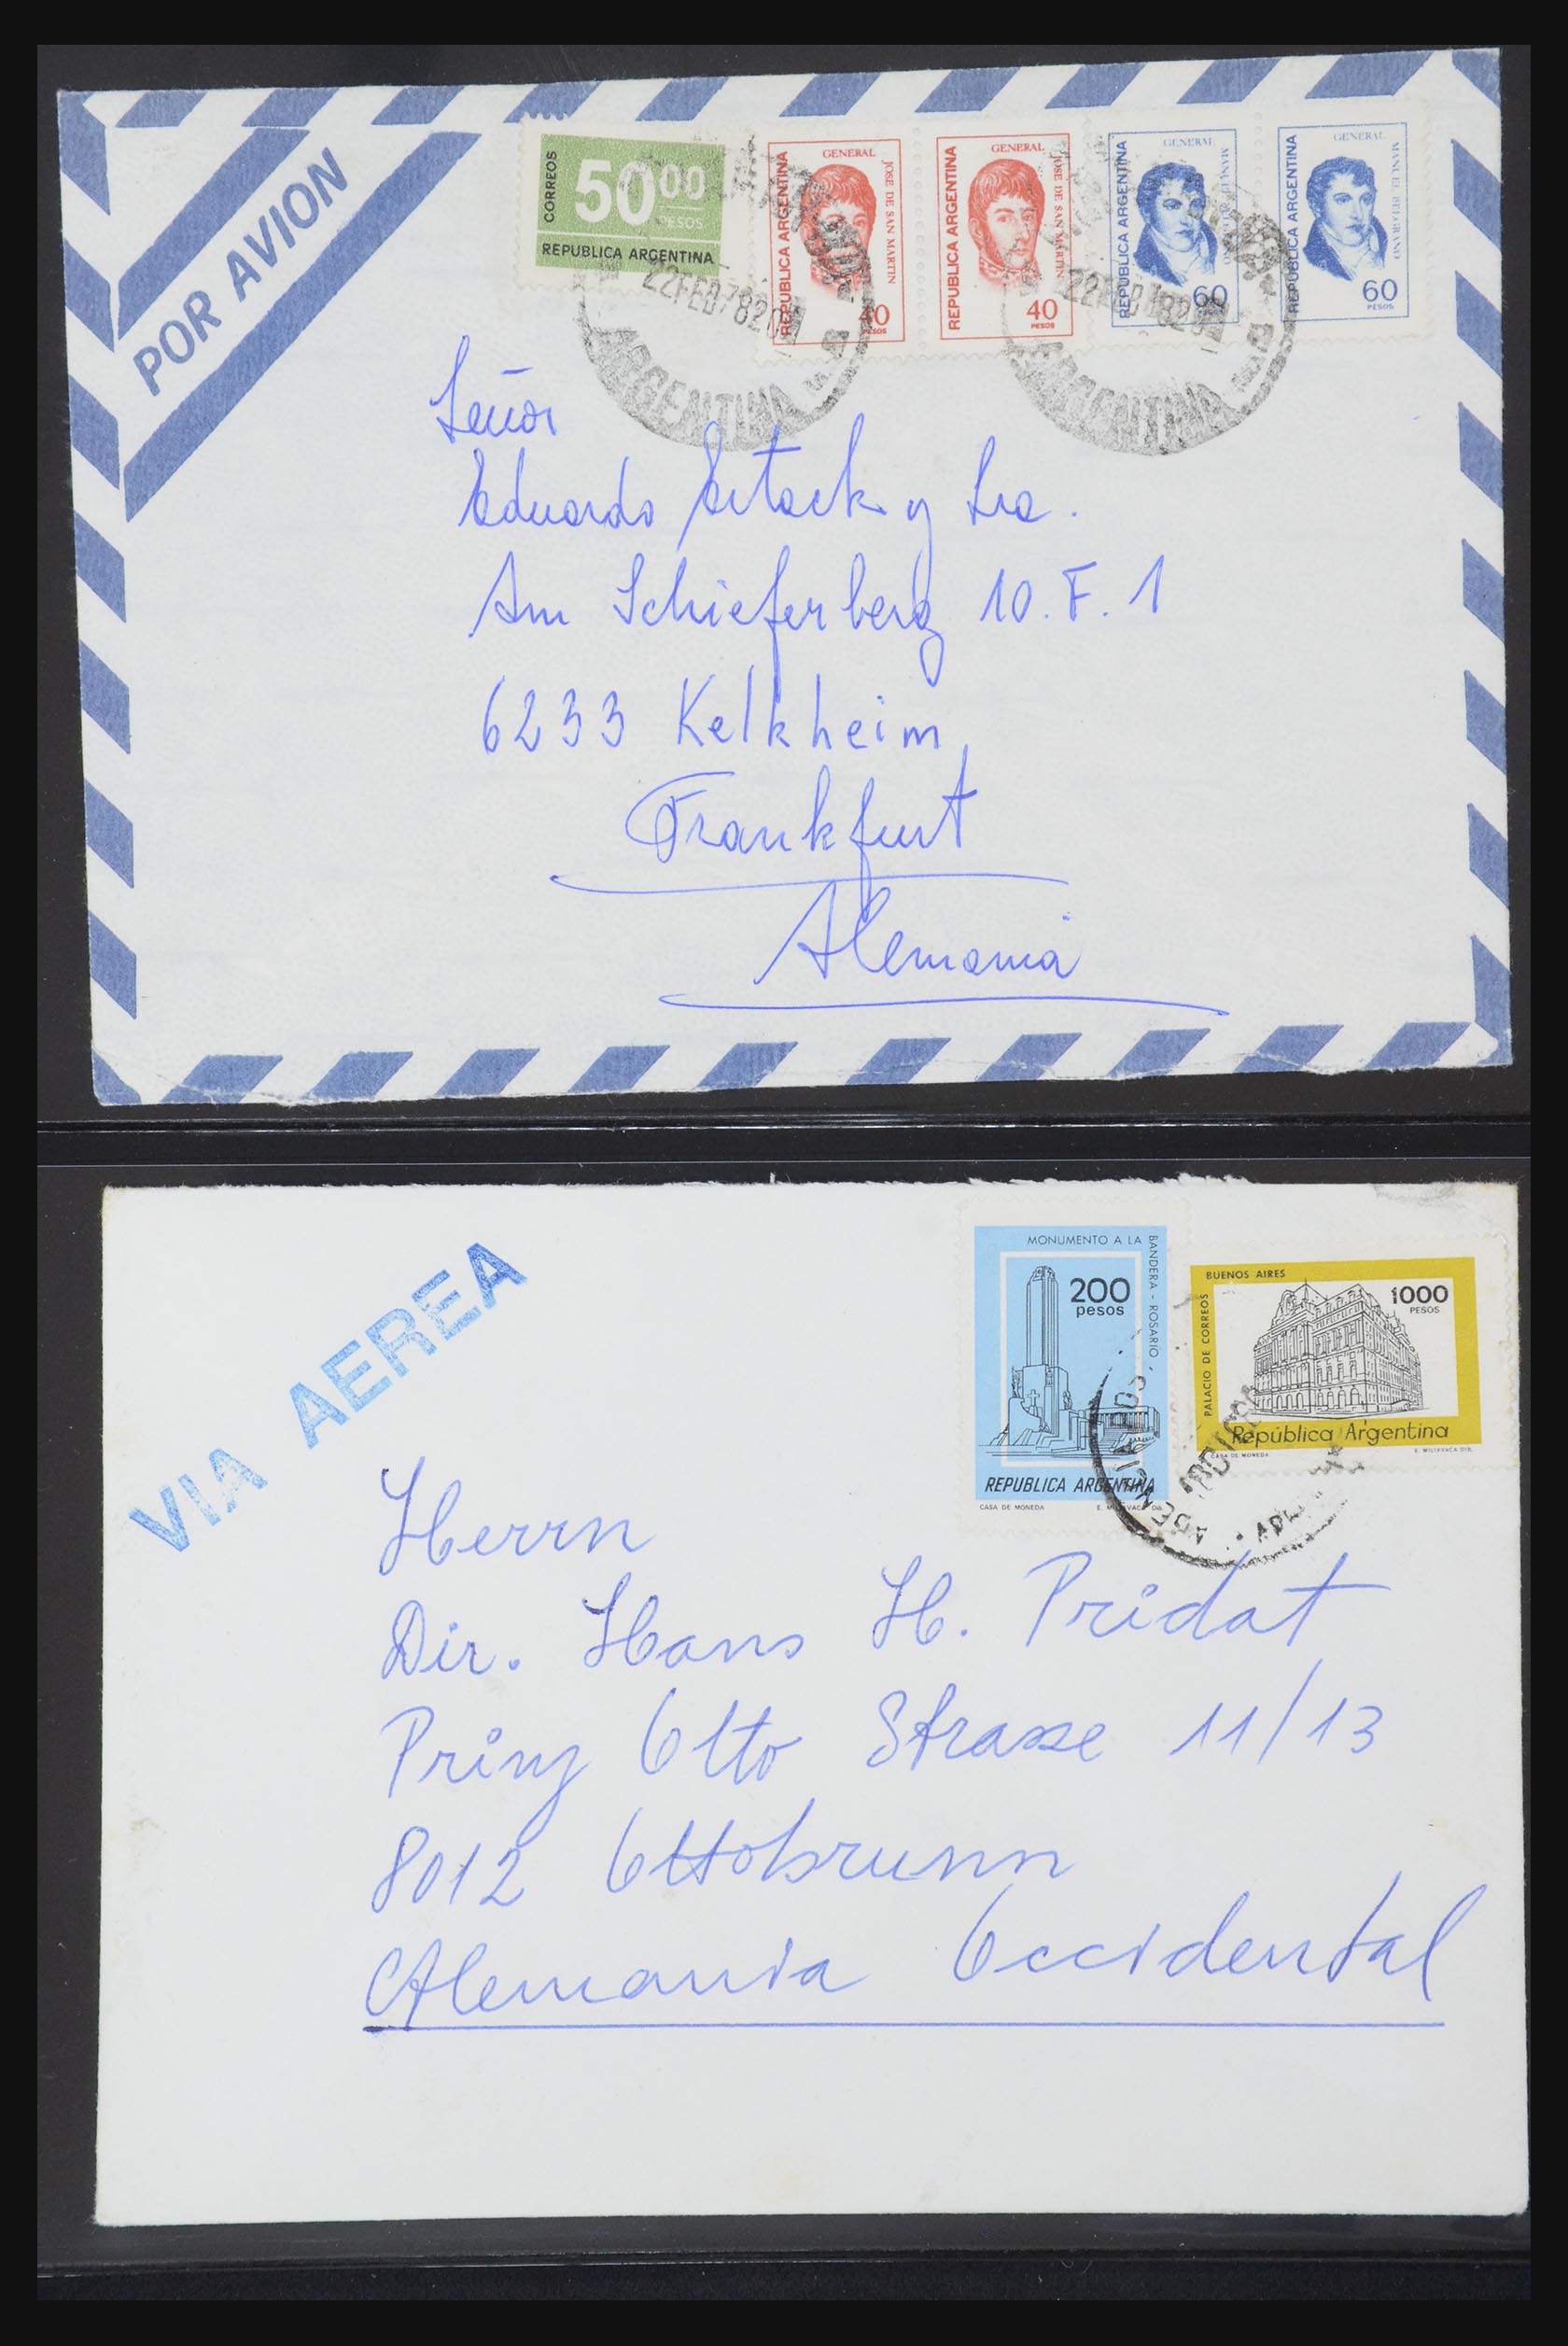 POR AVION
CORREOS
50 00
PESOS
REPUBLICA ARGENTINA
REPUBLICA ARGENTINA
GENERAL
JOSE DE SAN MARTIN
40
PESOS
REPUBLICA ARGENTINA
GENERAL
JOSE DE SAN MARTIN
40
PESOS
REPUBLICA ARGENTINA
GENERAL
MANUEL BELGRANO
60
REPUBLICA ARGENTINA
GENERAL
MANUEL BELGRANO
60
PESOS
22FEB78 20
ARGENTINA
22FEB78 20
ARGENTINA
Señor
Eduardo y Sra.
Am Schieferberg 10. F. 1
6233 Kelkheim
Frankfurt
Alemania
VIA AEREA
MONUMENTO A LA
BANDERA - ROSARIO
200
pesos
REPUBLICA ARGENTINA
CASA DE MONEDA
BUENOS AIRES
PALACIO DE CORREOS
1000
PESOS
República Argentina
CASA DE MONEDA E. MILIAVACA DIB.
Herrn
Dir. Hans H. Pridat
Prinz Otto Strasse 11/13
8012 Ottobrunn
Alemania Occidental